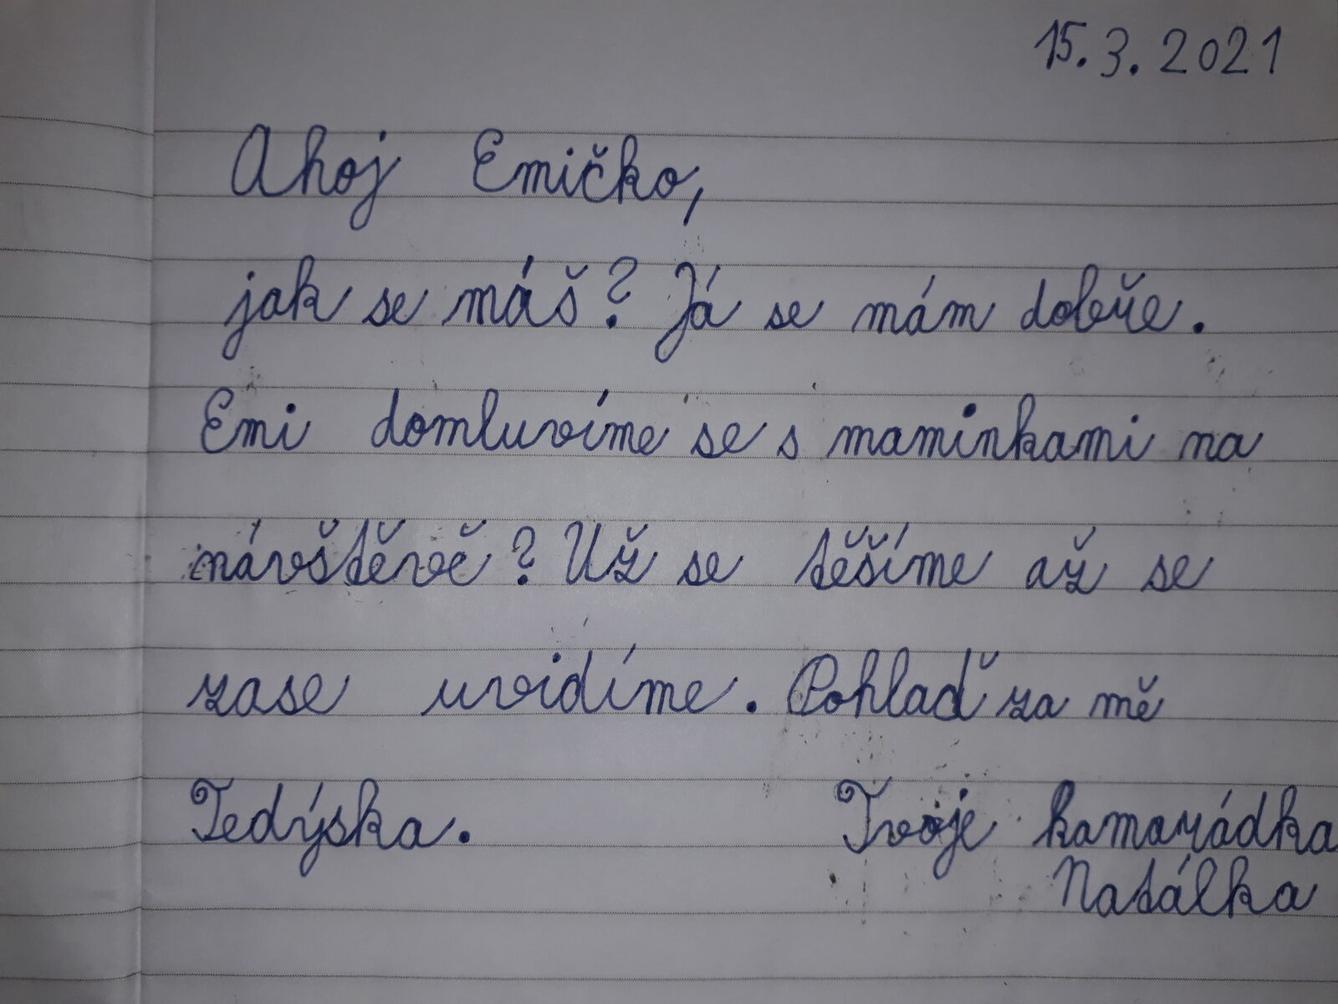 15.3.2021
Ahoj Emičko,
jak se máš? Já se mám dobře.
Emi domluvíme se s maminkami na
návštěvě? Už se těšíme až se
zase uvidíme. Pohlaď za mě
Tedýska. Tvoje kamarádka
Natálka